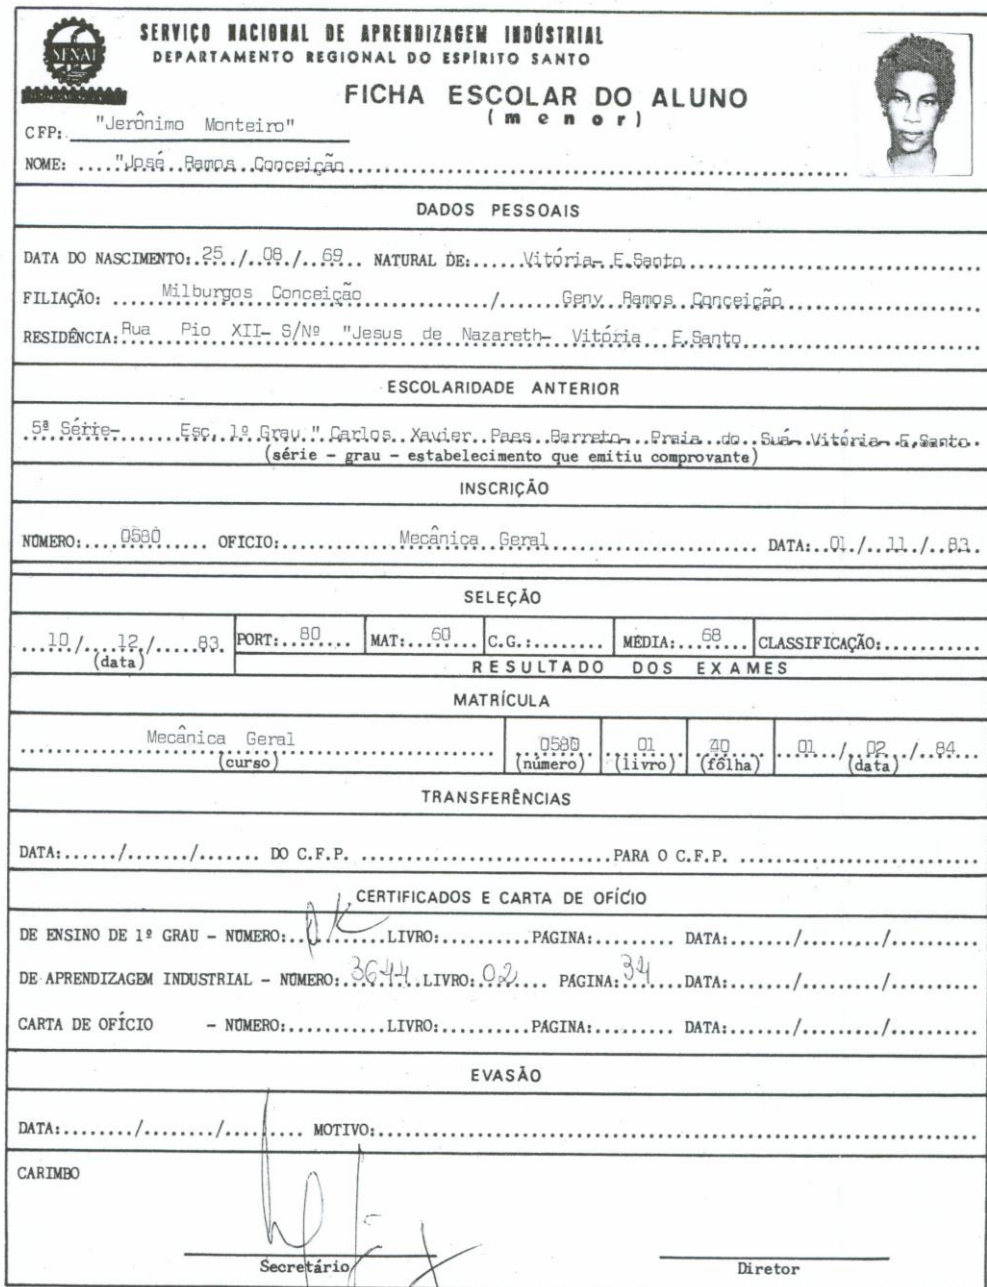 SENAI
SERVIÇO NACIONAL DE APRENDIZAGEM INDÚSTRIAL
DEPARTAMENTO REGIONAL DO ESPÍRITO SANTO
FICHA ESCOLAR DO ALUNO
(menor)
CFP: "Jerônimo Monteiro"
NOME: ...."José..Ramos..Conceição..........
DADOS PESSOAIS
DATA DO NASCIMENTO: 25 / 08 / 69 NATURAL DE: Vitória- E.Santo
FILIAÇÃO: Milburgos Conceição / Geny Ramos Conceição
RESIDÊNCIA: Rua Pio XII- S/Nº "Jesus de Nazareth- Vitória E.Santo
ESCOLARIDADE ANTERIOR
5ª Série- Esc. 1º Grau " Carlos Xavier Paes Barreto- Praia do Suá- Vitória- E.Santo
(série - grau - estabelecimento que emitiu comprovante)
INSCRIÇÃO
NÚMERO: 0580 OFICIO: Mecânica Geral DATA: 01 / 11 / 83
SELEÇÃO
10 / 12 / 83 PORT: 80 MAT: 60 C.G.: MÉDIA: 68 CLASSIFICAÇÃO:
(data) RESULTADO DOS EXAMES
MATRÍCULA
Mecânica Geral 0580 01 40 01 / 02 / 84
(curso) (número) (livro) (fôlha) (data)
TRANSFERÊNCIAS
DATA: / / DO C.F.P. PARA O C.F.P.
CERTIFICADOS E CARTA DE OFÍCIO
DE ENSINO DE 1º GRAU - NÚMERO: OK LIVRO: PÁGINA: DATA: / /
DE APRENDIZAGEM INDUSTRIAL - NÚMERO: 3644 LIVRO: 02 PÁGINA: 34 DATA: / /
CARTA DE OFÍCIO - NÚMERO: LIVRO: PÁGINA: DATA: / /
EVASÃO
DATA: / / MOTIVO:
CARIMBO
Secretário Diretor